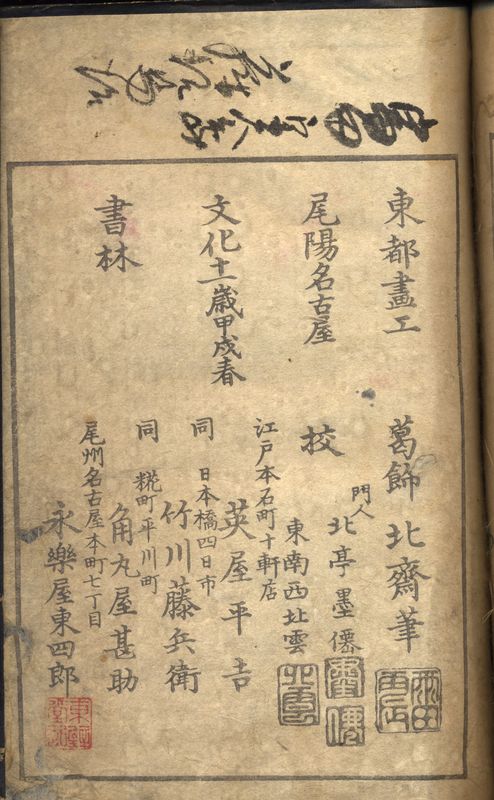 東都畫工
葛飾北齋筆
尾陽名古屋
校
門人
北亭墨僊
東南西北雲
文化十一歳甲戌春
江戸本石町十軒店
英屋平吉
同
日本橋四日市
竹川藤兵衛
書林
同
糀町平川町
角丸屋甚助
尾州名古屋本町七丁目
永樂屋東四郎